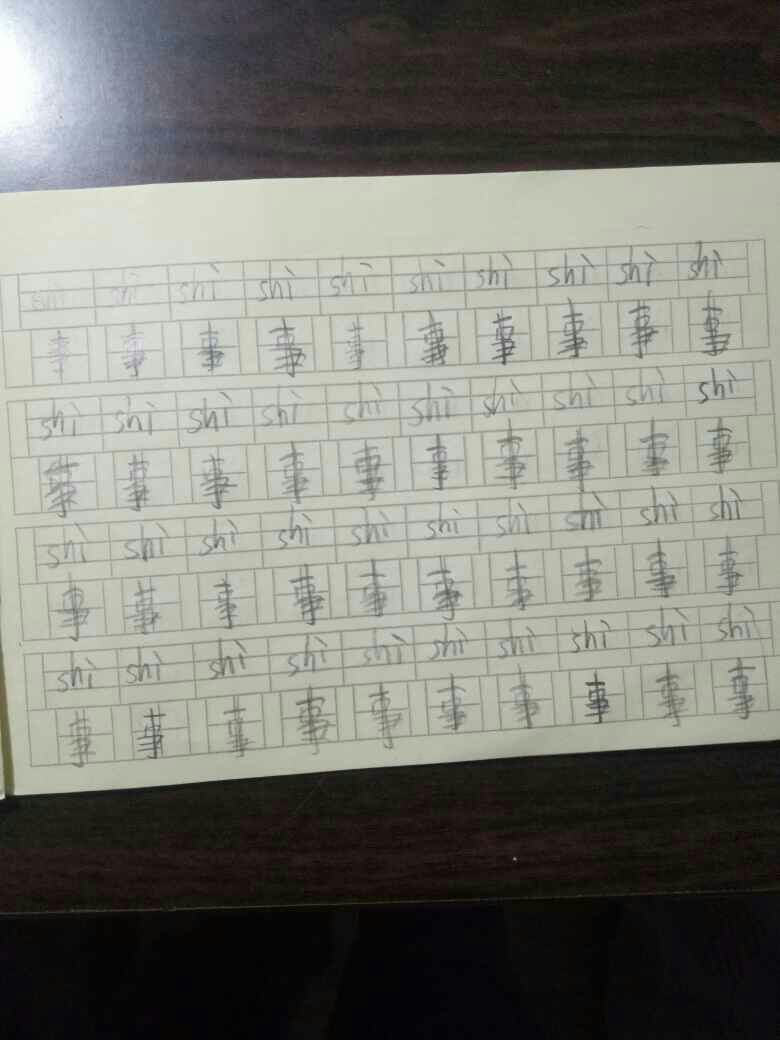 shì shì shì shì shì shì shì shì shì shì
事 事 事 事 事 事 事 事 事 事
shì shì shì shì shì shì shì shì shì shì
事 事 事 事 事 事 事 事 事 事
shì shì shì shì shì shì shì shì shì shì
事 事 事 事 事 事 事 事 事 事
shì shì shì shì shì shì shì shì shì shì
事 事 事 事 事 事 事 事 事 事